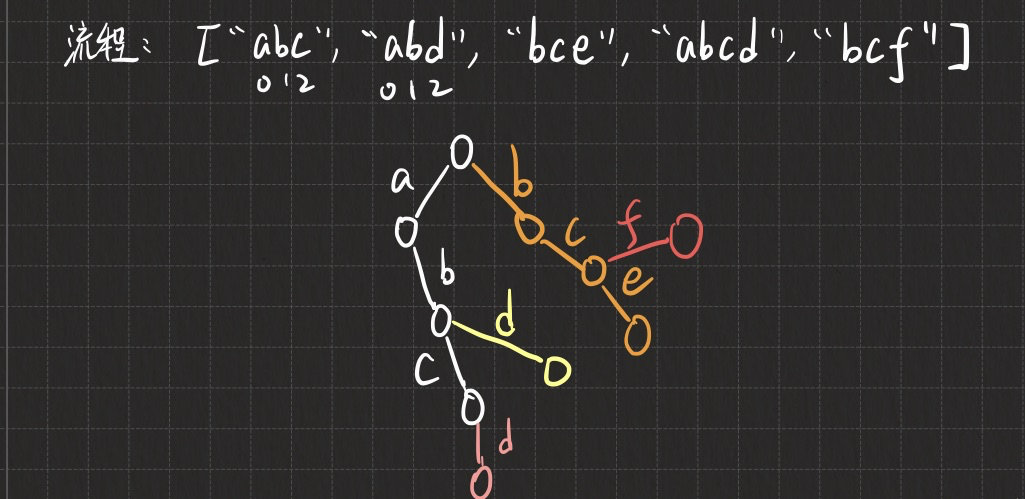 流程： ["abc", "abd", "bce", "abcd", "bcf"]
012 012
a b
c f
b e
d
c
d